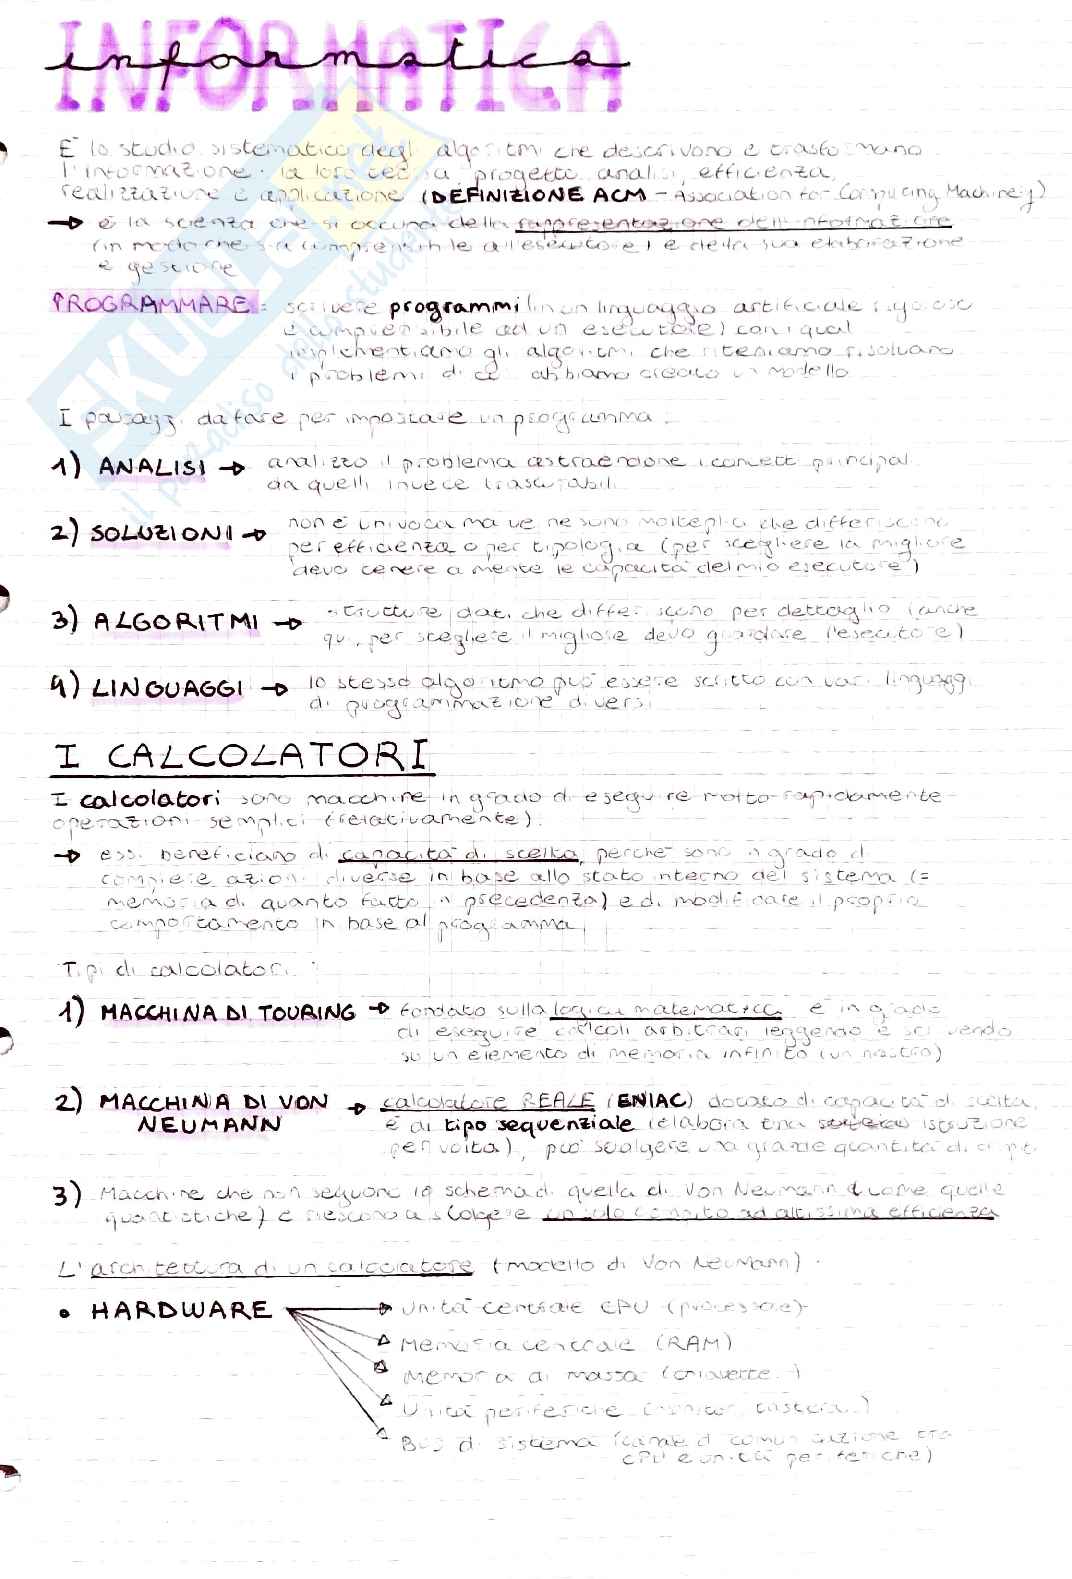 INFORMATICA
informatica
È lo studio sistematico degli algoritmi che descrivono e trasformano
l'informazione: la loro teoria, progetto, analisi, efficienza,
realizzazione e applicazione (DEFINIZIONE ACM - Association for Computing Machinery)
→ è la scienza che si occupa della rappresentazione dell'informazione
(in modo che sia comprensibile all'esecutore) e della sua elaborazione
e gestione
PROGRAMMARE = scrivere programmi (in un linguaggio artificiale rigoroso
e comprensibile ad un esecutore) con i quali
implementiamo gli algoritmi che riteniamo risolvano
i problemi di cui abbiamo creato un modello
I passaggi da fare per impostare un programma:
1) ANALISI → analizzo il problema astraendone i concetti principali
da quelli invece trascurabili
2) SOLUZIONI → non è univoca ma ve ne sono molteplici che differiscono
per efficienza o per tipologia (per scegliere la migliore
devo tenere a mente le capacità del mio esecutore)
3) ALGORITMI → strutture dati che differiscono per dettaglio (anche
qui, per scegliere il migliore devo guardare l'esecutore)
4) LINGUAGGI → lo stesso algoritmo può essere scritto con vari linguaggi
di programmazione diversi
I CALCOLATORI
I calcolatori sono macchine in grado di eseguire molto rapidamente
operazioni semplici (relativamente).
→ essi beneficiano di capacità di scelta, perché sono in grado di
compiere azioni diverse in base allo stato interno del sistema (=
memoria di quanto fatto in precedenza) e di modificare il proprio
comportamento in base al programma
Tipi di calcolatori:
1) MACCHINA DI TOURING → fondato sulla logica matematica è in grado
di eseguire calcoli arbitrari leggendo e scrivendo
su un elemento di memoria infinito (un nastro)
2) MACCHINA DI VON NEUMANN → calcolatore REALE (ENIAC) dotato di capacità di scelta,
è di tipo sequenziale (elabora una istruzione
per volta), può svolgere una grande quantità di compiti
3) Macchine che non seguono lo schema di quella di Von Neumann (come quelle
quantistiche) e riescono a svolgere un solo compito ad altissima efficienza
L'architettura di un calcolatore (modello di Von Neumann).
• HARDWARE → Unità centrale CPU (processore)
Memoria centrale (RAM)
Memoria di massa (chiavette..)
Unità periferiche (monitor, tastiera..)
Bus di sistema (canale di comunicazione tra
CPU e unità periferiche)
SKUOLA.net
il paradiso dello studente